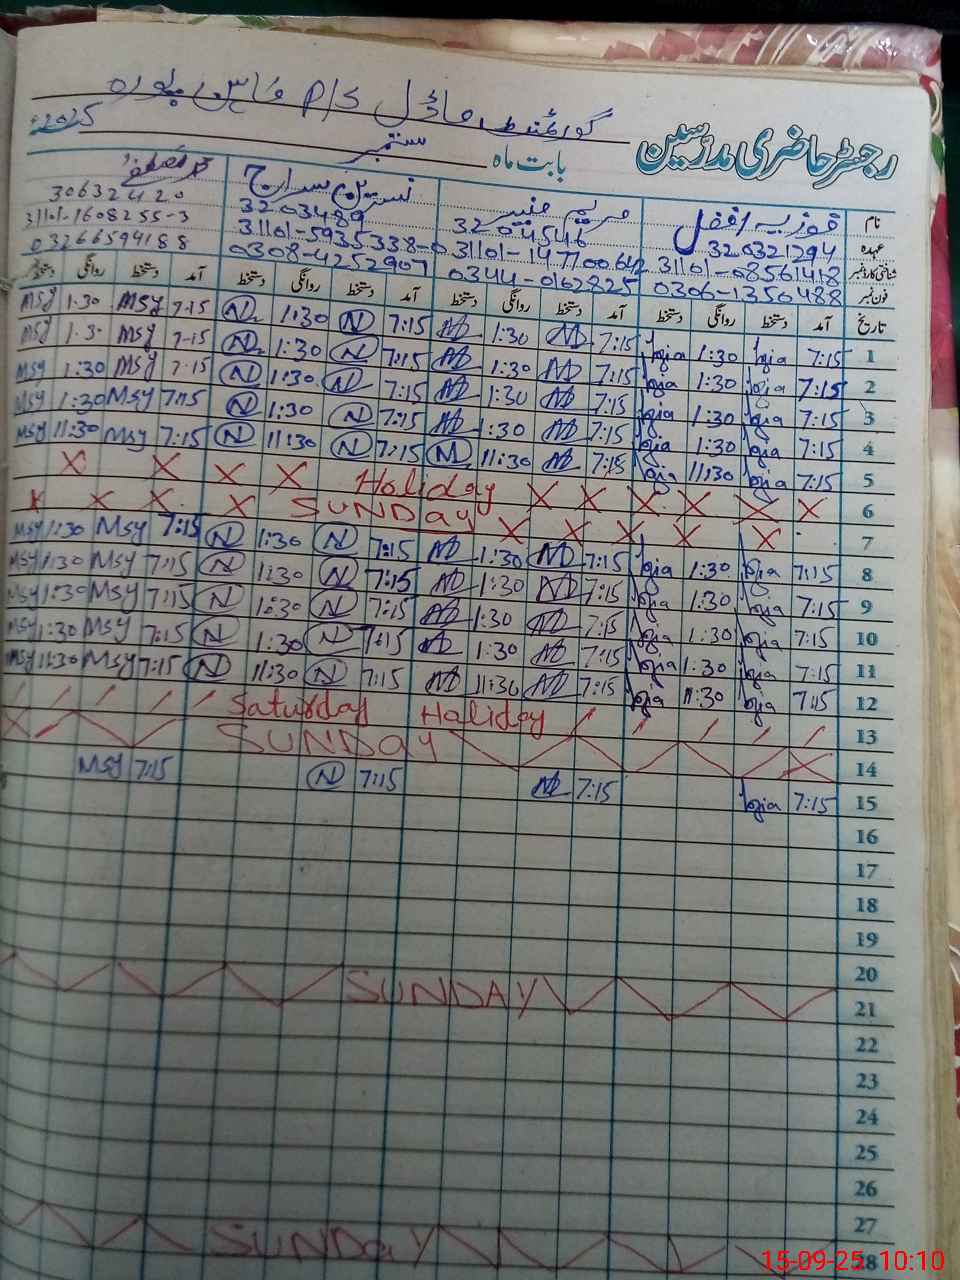 گورنمنٹ ماڈل P/S
رجسٹر حاضری مدرسین
بابت ماہ ستمبر 2025
نام فوزیہ افضل مریم منیر نسرین سراج
عہدہ 320321294 3204546 3203489 30632420
شناختی کارڈ نمبر 31101-08561418 31101-147100642 31101-5935338-0 31101-1608255-3
فون نمبر 0306-1350488 0344-0162825 0308-4252907 03266599188
تاریخ آمد دستخط روانگی دستخط آمد دستخط روانگی دستخط آمد دستخط روانگی دستخط آمد دستخط روانگی دستخط
1 7:15 1:30 7:15 1:30 7:15 N 1:30 N 7:15 Msy 1:30 Msy
2 7:15 1:30 7:15 1:30 7:15 N 1:30 N 7:15 Msy 1:30 Msy
3 7:15 1:30 7:15 1:30 7:15 N 1:30 N 7:15 Msy 1:30 Msy
4 7:15 1:30 7:15 1:30 7:15 N 1:30 N 7:15 Msy 1:30 Msy
5 7:15 11:30 7:15 11:30 7:15 N 11:30 N 7:15 Msy 11:30 Msy
6 Holiday
7 SUNDAY
8 7:15 1:30 7:15 1:30 7:15 N 1:30 N 7:15 Msy 1:30 Msy
9 7:15 1:30 7:15 1:30 7:15 N 1:30 N 7:15 Msy 1:30 Msy
10 7:15 1:30 7:15 1:30 7:15 N 1:30 N 7:15 Msy 1:30 Msy
11 7:15 1:30 7:15 1:30 7:15 N 1:30 N 7:15 Msy 1:30 Msy
12 7:15 11:30 7:15 11:30 7:15 N 11:30 N 7:15 Msy 11:30 Msy
13 Saturday Haliday
14 SUNDAY
15 7:15 7:15 7:15 N 7:15 Msy
16
17
18
19
20
21 SUNDAY
22
23
24
25
26
27
28 SUNDAY
15-09-25 10:10